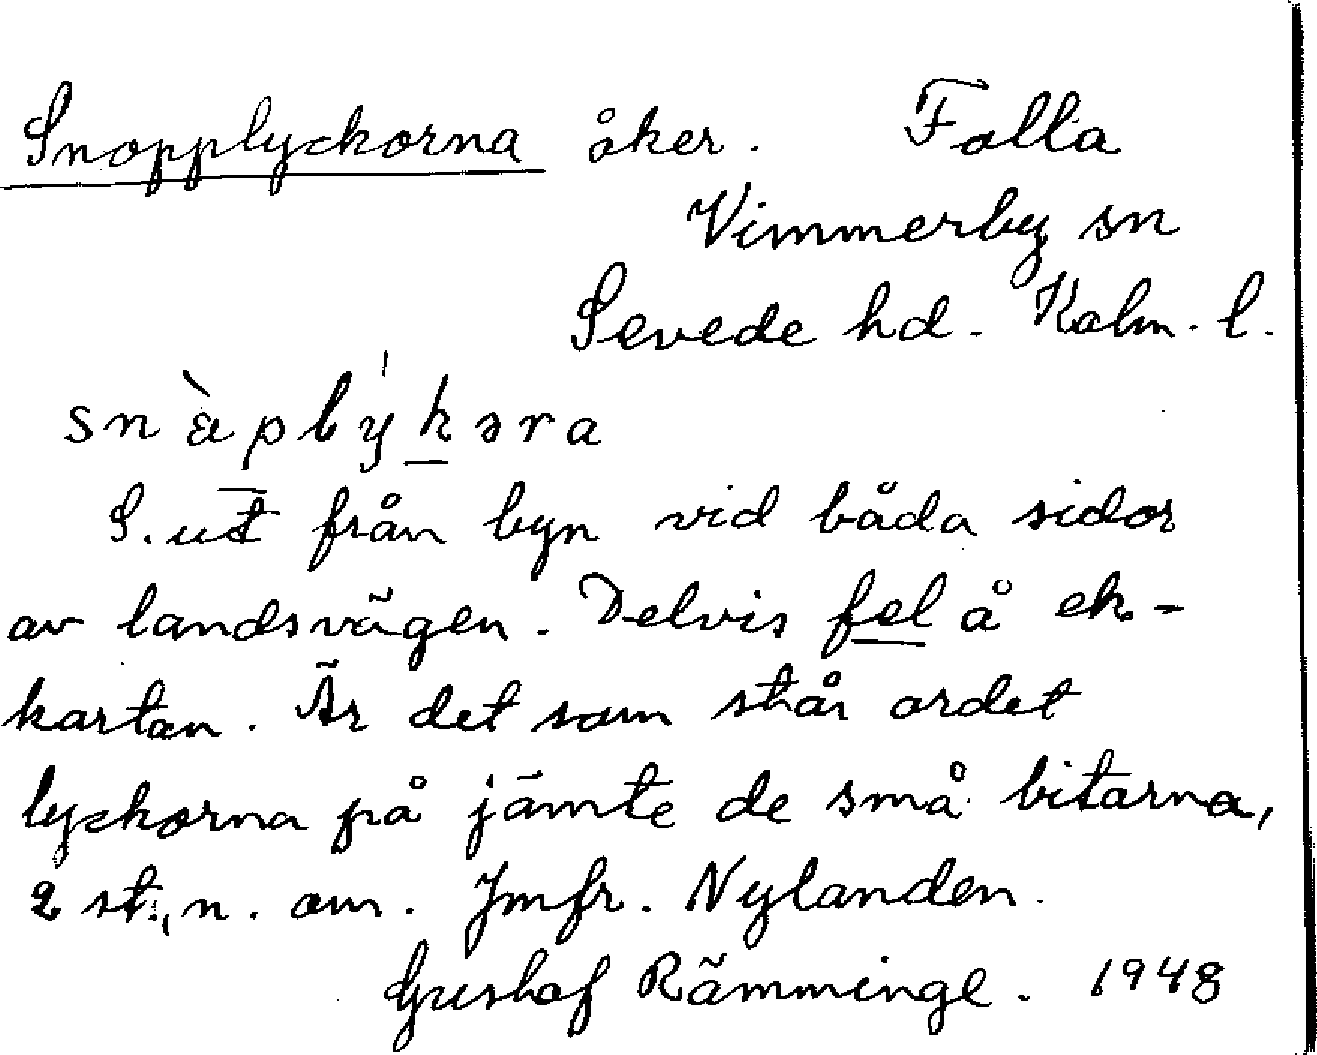 Snopplyckorna åker. Falla
Vimmerby sn
Sevede hd. Kalm. l.
snàplýkəra
S. ut från byn vid båda sidor
av landsvägen. Delvis fel å ek-
kartan. Är det som står ordet
lyckorna på jämte de små bitarna,
2 st., n. om. Jmfr. Nylanden.
Gustaf Rämminge. 1948